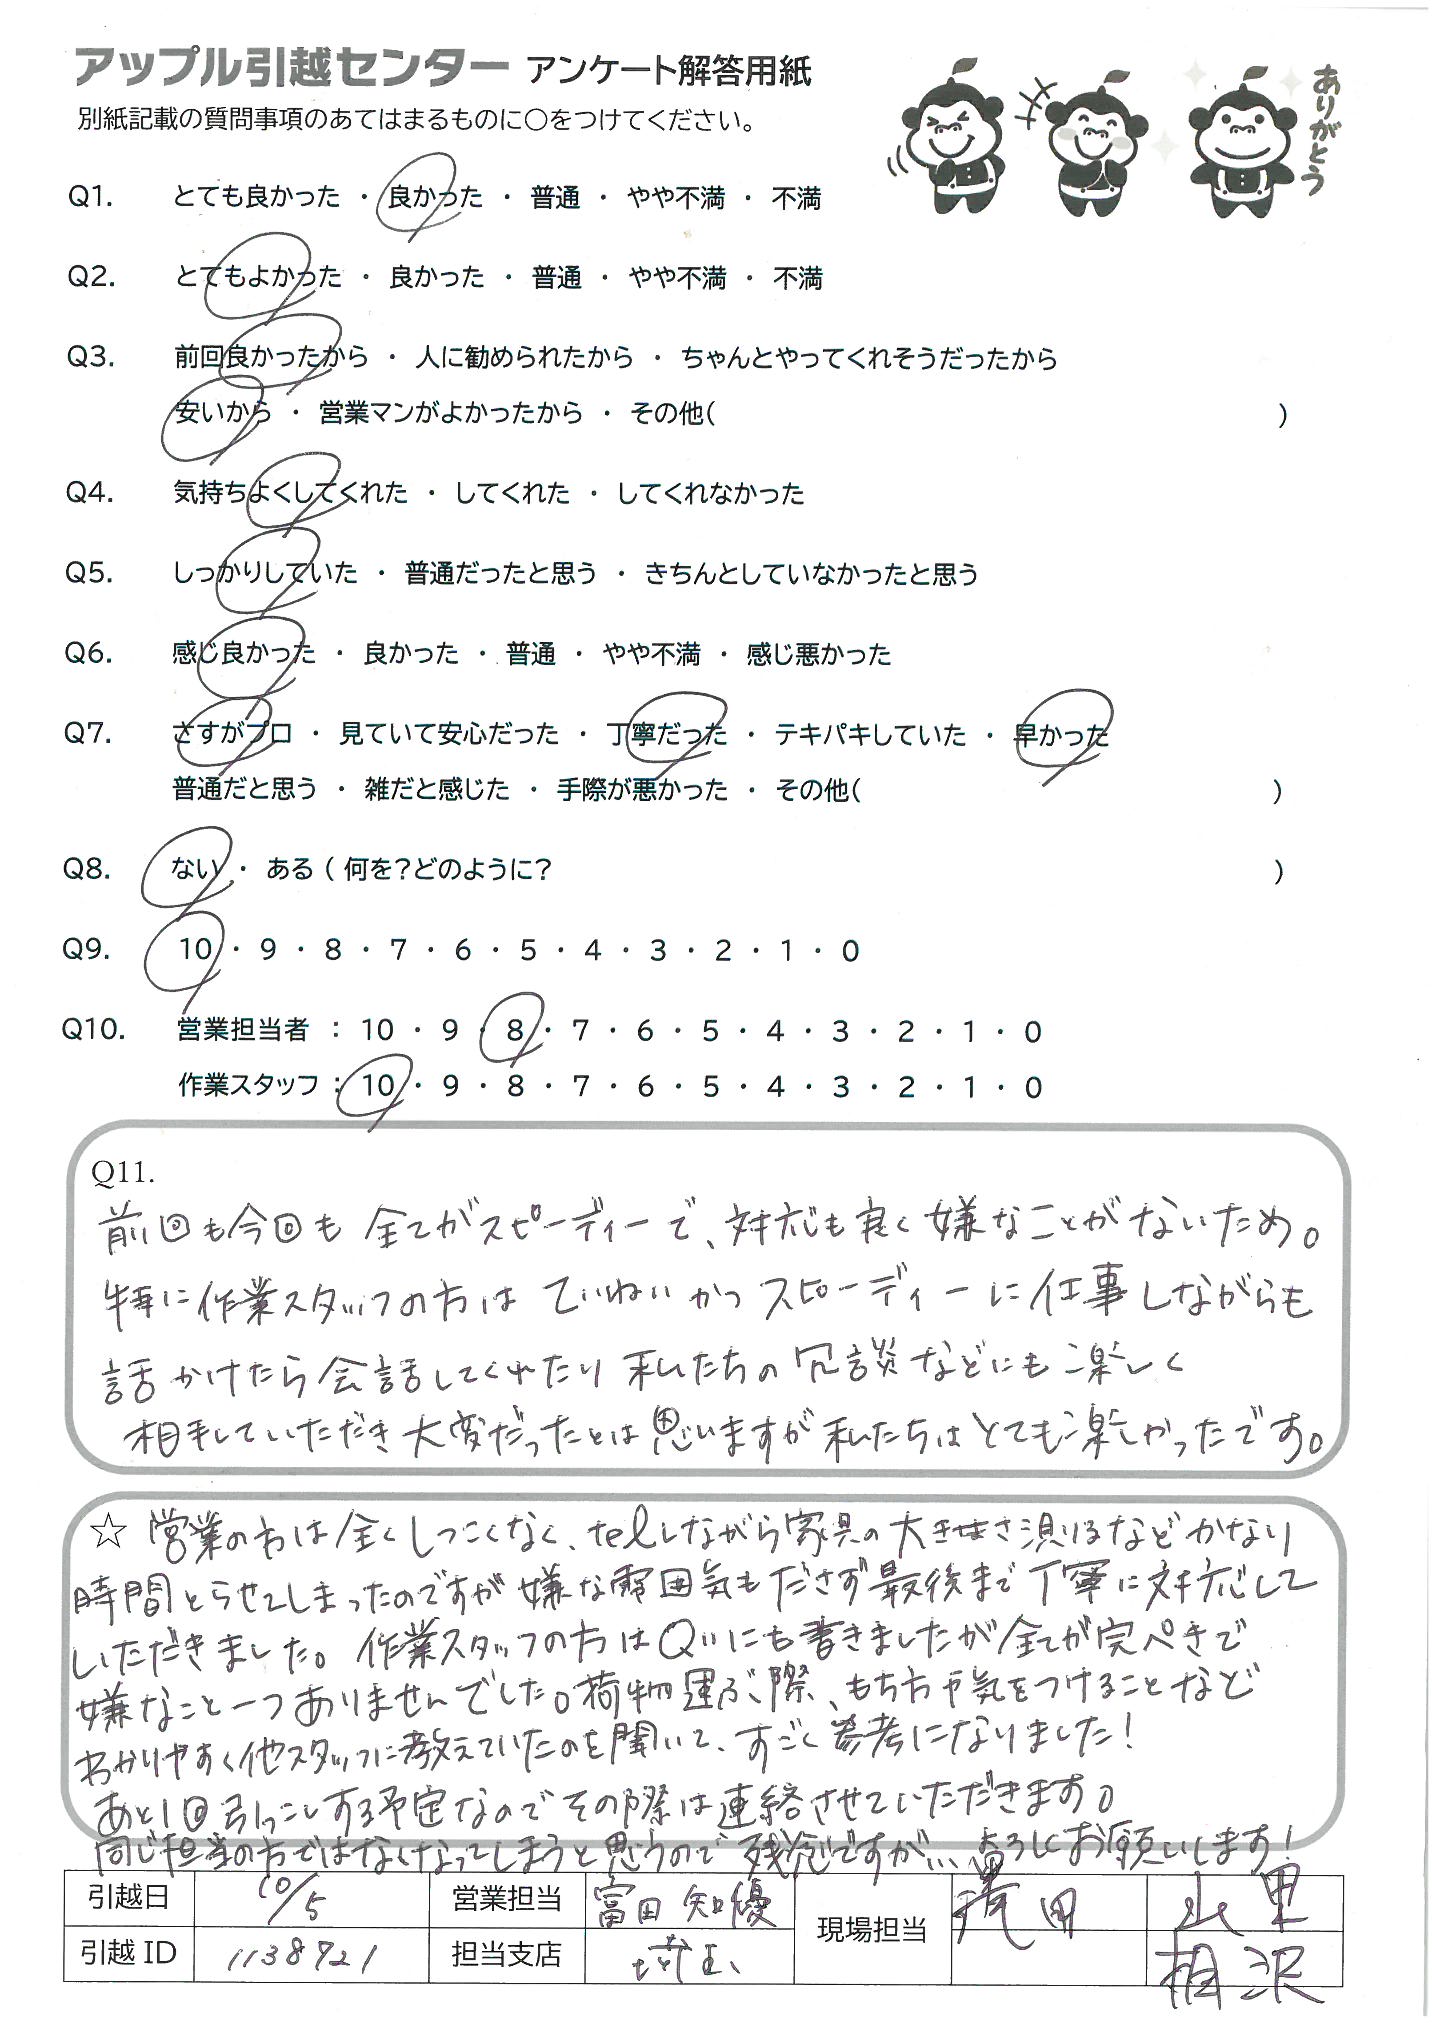 アップル引越センター アンケート解答用紙
別紙記載の質問事項のあてはまるものに○をつけてください。
ありがとう
Q1. とても良かった ・ 良かった ・ 普通 ・ やや不満 ・ 不満
Q2. とてもよかった ・ 良かった ・ 普通 ・ やや不満 ・ 不満
Q3. 前回良かったから ・ 人に勧められたから ・ ちゃんとやってくれそうだったから
安いから ・ 営業マンがよかったから ・ その他( )
Q4. 気持ちよくしてくれた ・ してくれた ・ してくれなかった
Q5. しっかりしていた ・ 普通だったと思う ・ きちんとしていなかったと思う
Q6. 感じ良かった ・ 良かった ・ 普通 ・ やや不満 ・ 感じ悪かった
Q7. さすがプロ ・ 見ていて安心だった ・ 丁寧だった ・ テキパキしていた ・ 早かった
普通だと思う ・ 雑だと感じた ・ 手際が悪かった ・ その他( )
Q8. ない ・ ある ( 何を?どのように? )
Q9. 10 ・ 9 ・ 8 ・ 7 ・ 6 ・ 5 ・ 4 ・ 3 ・ 2 ・ 1 ・ 0
Q10. 営業担当者 : 10 ・ 9 ・ 8 ・ 7 ・ 6 ・ 5 ・ 4 ・ 3 ・ 2 ・ 1 ・ 0
作業スタッフ : 10 ・ 9 ・ 8 ・ 7 ・ 6 ・ 5 ・ 4 ・ 3 ・ 2 ・ 1 ・ 0
Q11.
前回も今回も全てがスピーディーで、対応も良く嫌なことがないため。
特に作業スタッフの方はていねいかつスピーディーに仕事しながらも
話かけたら会話してくれたり私たちの冗談などにも楽しく
相手していただき大変だったとは思いますが私たちはとても楽しかったです。
☆ 営業の方は全くしつこくなく、telしながら家具の大きさ測るなどかなり
時間とらせてしまったのですが嫌な雰囲気もださず最後まで丁寧に対応して
いただきました。作業スタッフの方はQ11にも書きましたが全てが完ぺきで
嫌なこと一つありませんでした。荷物運ぶ際、もち方や気をつけることなど
わかりやすく他スタッフに教えていたのを聞いて、すごく参考になりました!
あと1回引っこしする予定なのでその際は連絡させていただきます。
同じ担当の方ではなくなってしまうと思うので残念ですが… よろしくお願いします!
引越日 10/5 営業担当 富田 知優 現場担当 田 山里
引越 ID 1138721 担当支店 埼玉 相沢